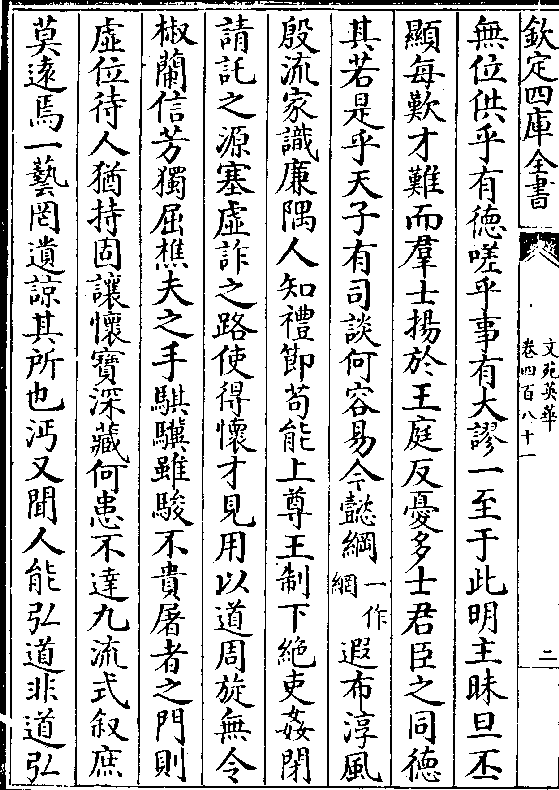 欽定四庫全書
文苑英華
卷四百八十一
二
無位供乎有德嗟乎事有大謬一至于此明主昧旦丕
顯每歎才難而羣士揚於王庭反憂多士君臣之同德
其若是乎天子有司談何容易今懿綱一作網遐布淳風
殷流家識廉隅人知禮節苟能上尊王制下絶吏姦閉
請託之源塞虛詐之路使得懷才見用以道周旋無令
椒蘭信芳獨屈樵夫之手騏驥雖駿不貴屠者之門則
虛位待人猶持固讓懷寶深藏何患不達九流式叙庶
莫遠焉一藝罔遺諒其所也沔又聞人能弘道非道弘